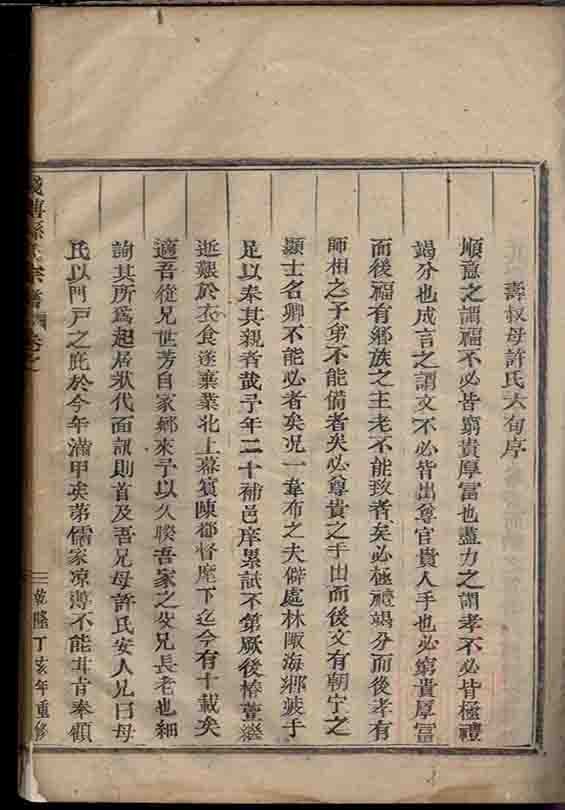 壽叔母許氏六旬序
順意之謂福不必皆窮貴厚富也盡力之謂孝不必皆極禮
竭分也成言之謂文不必皆出尊官貴人手也必窮貴厚富
而後福有鄉族之主老不能致者矣必極禮竭分而後孝有
師相之子弟不能備者矣必尊貴之手出而後文有朝宁之
顯士名卿不能必者矣况一韋布之夫僻處林陬海鄉蔽手
足以奉其親者哉予年二十補邑庠累試不第厥後椿萱繼
逝艱於衣食遂棄業北上幕賓陳都督麾下迄今有十載矣
適吾從兄世芳自家鄉來予以久睽吾家之父兄長老也細
詢其所爲起居狀代面訊則首及吾兄母許氏安人兄曰母
氏以門戶之庇於今年滿甲矣第儒家凉薄不能甘旨奉頤
孫氏宗譜 卷之
乾隆丁亥年重修